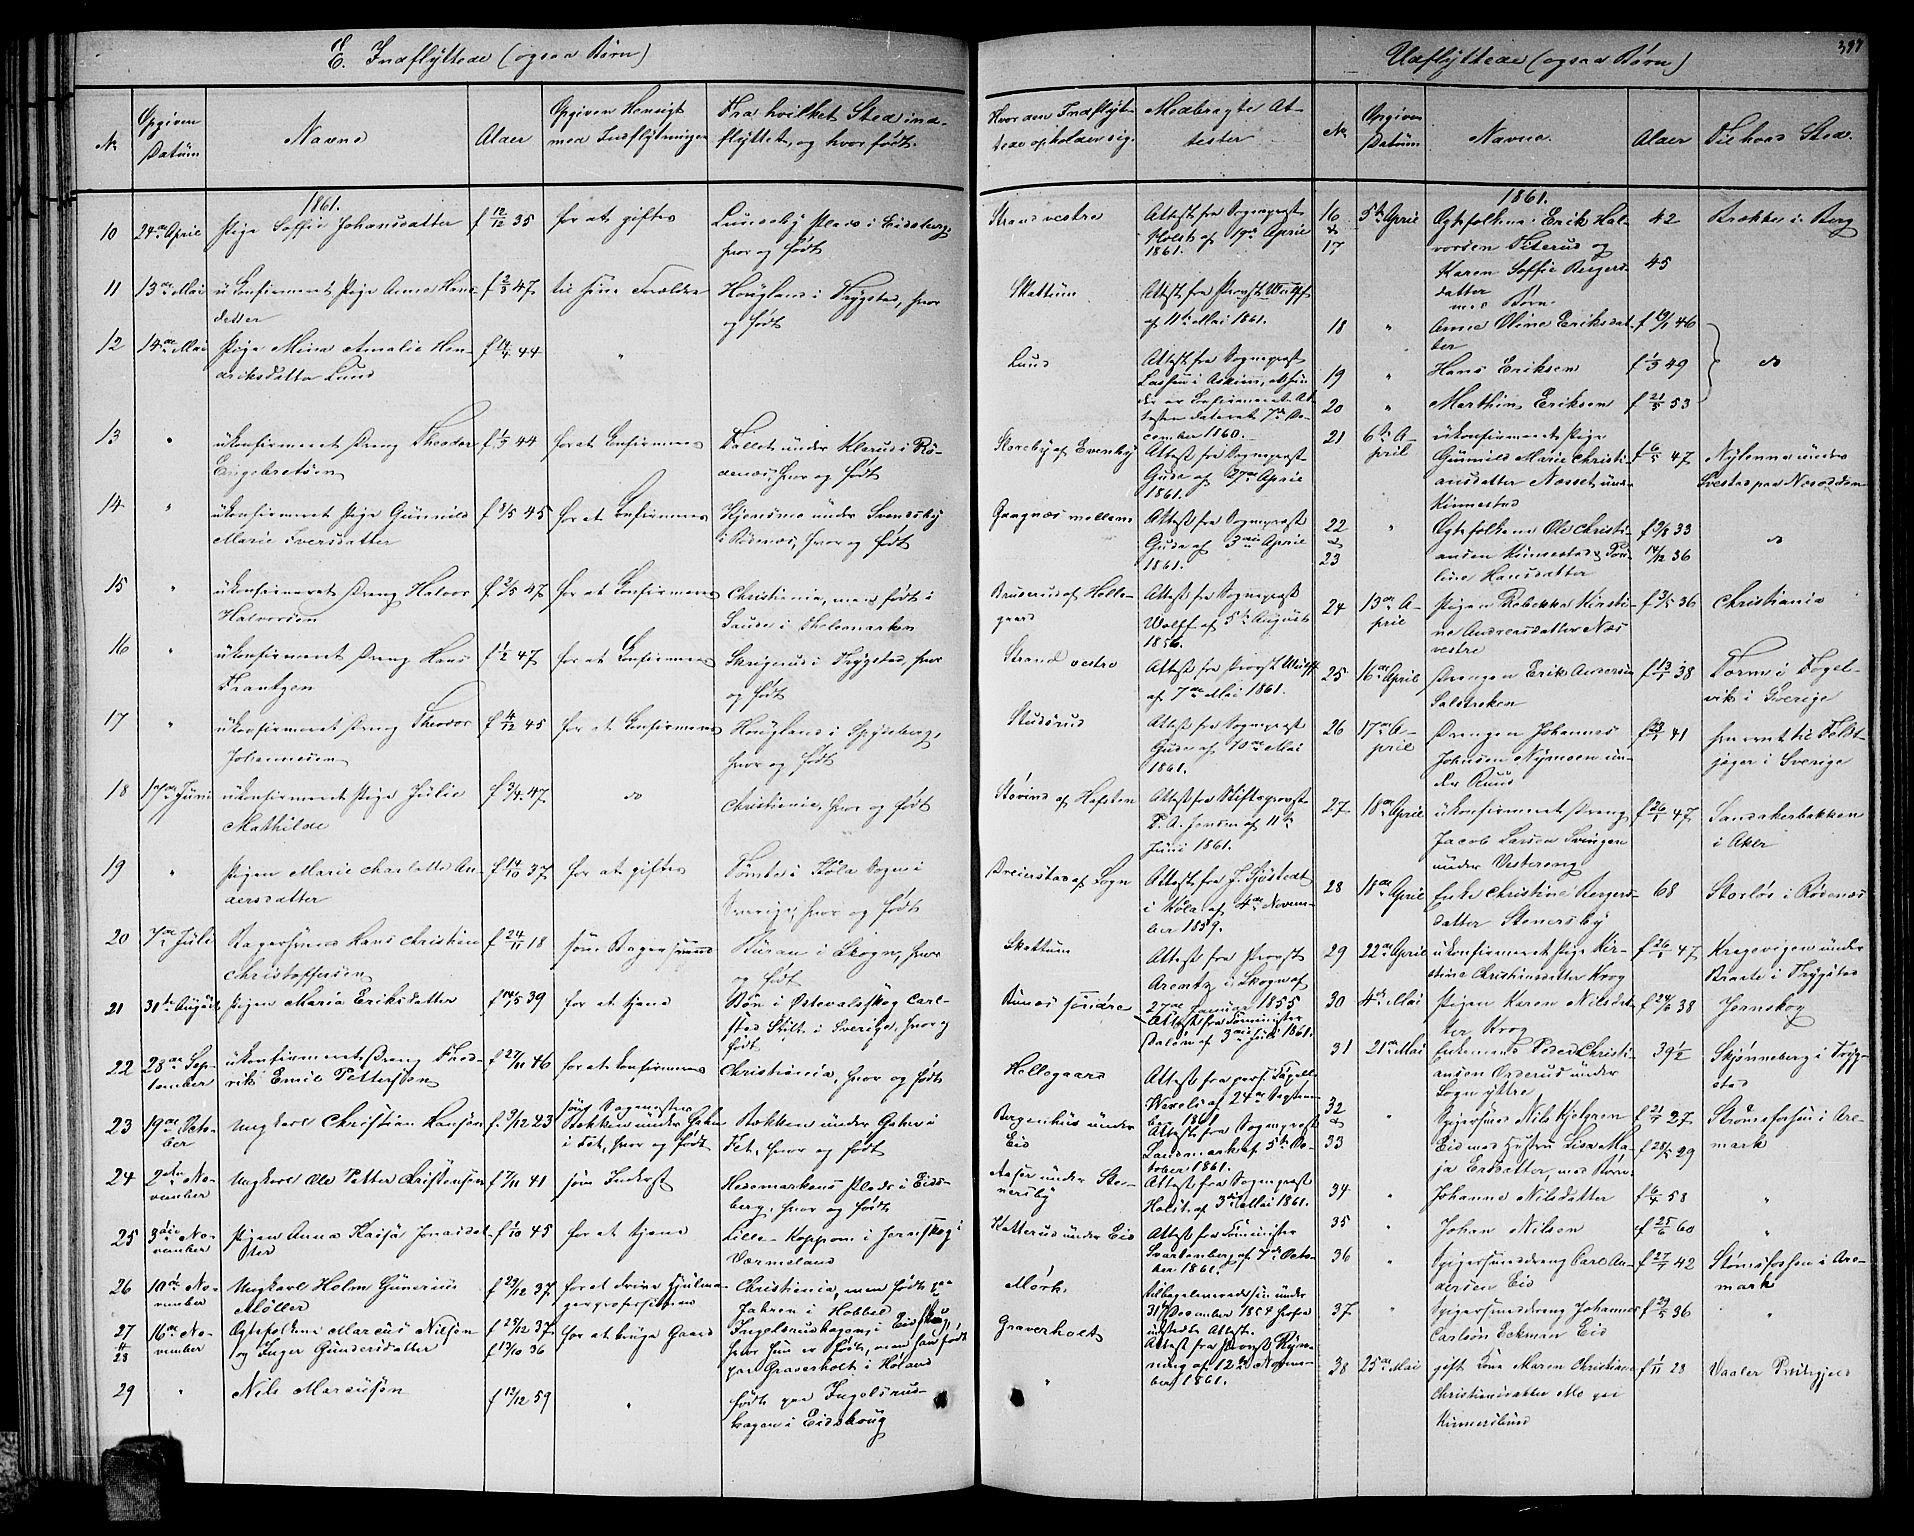 E. Indflyttede (ogsaa Børn)
No
Opgiven Datum
Navne
Alder
Opgiven Hensigt med Indflytningen
Fra hvilket Sted indflyttet, og hvor født.
Hvor den Indflyttede opholder sig.
Medbragte Attester
1861.
10 24de April Pige Soffie Johansdatter f 12/12 35 for at giftes Lundeby Plads i Eidsberg, hvor og født Strand vestre Attest fra Sognepræst Holst af 19de April 1861.
11 13de Mai ukonfirmeret Pige Anne Hansdatter f 2/3 47 til sine Forældre Hougland i Trygstad, hvor og født Skattum Attest fra Provst Wulff af 11te Mai 1861.
12 14de Mai Pige Mina Amalie Hendriksdatter Lund f 14/4 44 " Lund Attest fra Sognepræst i Askim, Attesten dateret 7de December 1860.
13 " ukonfirmeret Dreng Theodor Engebretsen f 1/3 44 for at Confirmeres under Klarud i Rødenæs, hvor og født Storeby af Evenby Attest fra Sognepræst Gude af 27de April 1861.
14 " ukonfirmeret Pige Gunnild Marie Iversdatter f 8/5 45 for at Confirmeres Kjensmo under Svendsby i Rødnæs, hvor og født Gangnæs mellem Attest fra Sognepræst Gude af 3die April 1861.
15 " ukonfirmeret Dreng Halvor Halvorsen f 2/5 47 for at Confirmeres Christiania, men født i Saude i Thelemarken Bruserud af Hellegaard Attest fra Sognepræst Wolff af 5te August 1856.
16 " ukonfirmeret Dreng Hans Frantzen f 1/2 47 for at Confirmeres i Trygstad, hvor og født Strand vestre Attest fra Provst Wulff af 7de Mai 1861.
17 " ukonfirmeret Dreng Theodor Johannesen f 4/12 45 for at Confirmeres Hougland i Spydeberg, hvor og født Studsrud Attest fra Sognepræst Gude af 10de Mai 1861.
18 17de Juni ukonfirmeret Pige Julie Mathilde f 3/4 47 do Christiania, hvor og født Støvind af Hafsten Attest fra Stiftsprovst P. A. Jensen af 11te Juni 1861.
19 " Pigen Marie Charlotte Andersdatter f 14/10 37 for at giftes Tomta i Köla Sogn i Sverige, hvor og født Dreierstad af Sogn Attest fra J. Sjöstedt i Köla af 4de November 1859.
20 7de Juli Bagersvend Hans Christian Christophersen f 24/11 18 som Bagersvend i Skogn, hvor og født Skattum Attest fra Provst Arentz i Skogn af 27de Januar 1855
21 31te August Pigen Maria Eriksdatter f 14/5 39 for at tjene Bön i Østervalskog Carlstad Stift i Sverige, hvor og født søndre Attest fra Comminister Dalén af 3die Juli 1861.
22 28de September ukonfirmeret Dreng Fredrik Emil Pettersen f 27/11 46 for at Confirmeres Christiania, hvor og født Hellegaard Attest fra pers. Capellan af 24de September 1861
23 19de October Ungkarl Christian Hansen f. 9/12 23 Bakken under Gaher i Fet, hvor og født Bergenhus under Eid Attest fra Sognepræst Landmark af 5te October 1861.
24 2den November Ungkarl Ole Petter Christensen f 7/11 41 som Inderst Hedemarkens Plads i Eidsberg, hvor og født Aaser under Stenersby Attest fra Sognepræst Holst af 3die Mai 1861.
25 3die November Pigen Anna Kajsa Jonasdatter f 1/10 45 for at tjene Lille-Koppom i Jernskog i Värmeland Katterud under Eid Attest fra Comminister Svartenberg af 7de October 1861.
26 10de November Ungkarl Holm Gunerius Møller f 29/12 37 for at drive Hjulmagerprofessionen Christiania, men født paa i Hobbel Mørk 31te December 1854 udstedte Attest.
27 & 28 16de November Ægtefolkene Marcus Nilsen og Inger Gundersdatter f 25/12 37 f 13/10 36 for at bruge Gaard Ingelsrudhagen i Eidskoug, hvor hun er født, men han født paa Graverholt i Høland Graverholt Attest fra Provst Rynning af 12te November 1861.
29 " Nils Marcussen f 12/12 59 " født paa Ingelsrudhagen i Eidskoug "
Udflyttede (ogsaa Børn) 397
No
Opgiven Datum
Navne.
Alder
Til hvad Sted.
1861.
16 & 17 5te April Ægtefolkene Erik Halvorsen og Karen Soffie Birgersdatter med Børn 42 45 Brække i Berg
18 " Anne Oline Eriksdatter f 19/1 46
19 " Hans Eriksen f 1/3 49 do
20 " Marthin Eriksen f 21/5 53
21 6te April ukonfirmeret Pige Gunnild Marie Christiansdatter Næsset under Kinnestad f 6/5 47 Nylænna under Svestad paa Næsodden
22 & 23 " Ægtefolkene Ole Christiansen Kinnestad & Pouline Hansdatter f 9/8 33 14/12 36 do
24 13de April Pigen Rebekka Kirstine Andreasdatter Næs vestre f 3/5 36 Christiania
25 16de April Drengen Erik Andersen f 13/1 38 i Fogelvik i Sverige
26 17de April Drengen Johannes Johnsen Nymoen under Ruud 41 i Sverige
27 18de April ukonfirmeret Dreng Jacob Larsen Svingen under Vestereng f 26/1 47 Sandakerbakken i Aker
28 18de April Enke Christine Birgersdatter Stenersby 68 Storløs i Rødenæs
29 22de April ukonfirmeret Pige Kirstine Christiansdatter Krog f 26/1 47 Kragevigen under i Trygstad
30 4de Mai Pigen Karen Nilsdatter Krog f 24/6 38 Jernskog
31 21de Mai Enkemand Peder Christiansen Orderud under Sogn ytre 39 1/2 Skjønneberg i Trygstad
32 & 33 " Nils Kjelgren Eid med Hustru Lisa Maja Ersdatter, med Børn f 21/7 27 f 28/5 29 Strømsfossen i Aremark
34 " Johanna Nilsdatter f 6/4 58 "
35 " Johan Nilsen f 25/6 60 "
36 " Carl Andersen Eid f 27/7 42 Strømsfossen i Aremark
37 " Johannes Carlsön Eckman Eid f 29/5 36 "
38 25de Mai gift Kone Maren Christine Christiansdatter Mo paa Kinnerslund f 1/11 23 Vaaler Præstegjeld